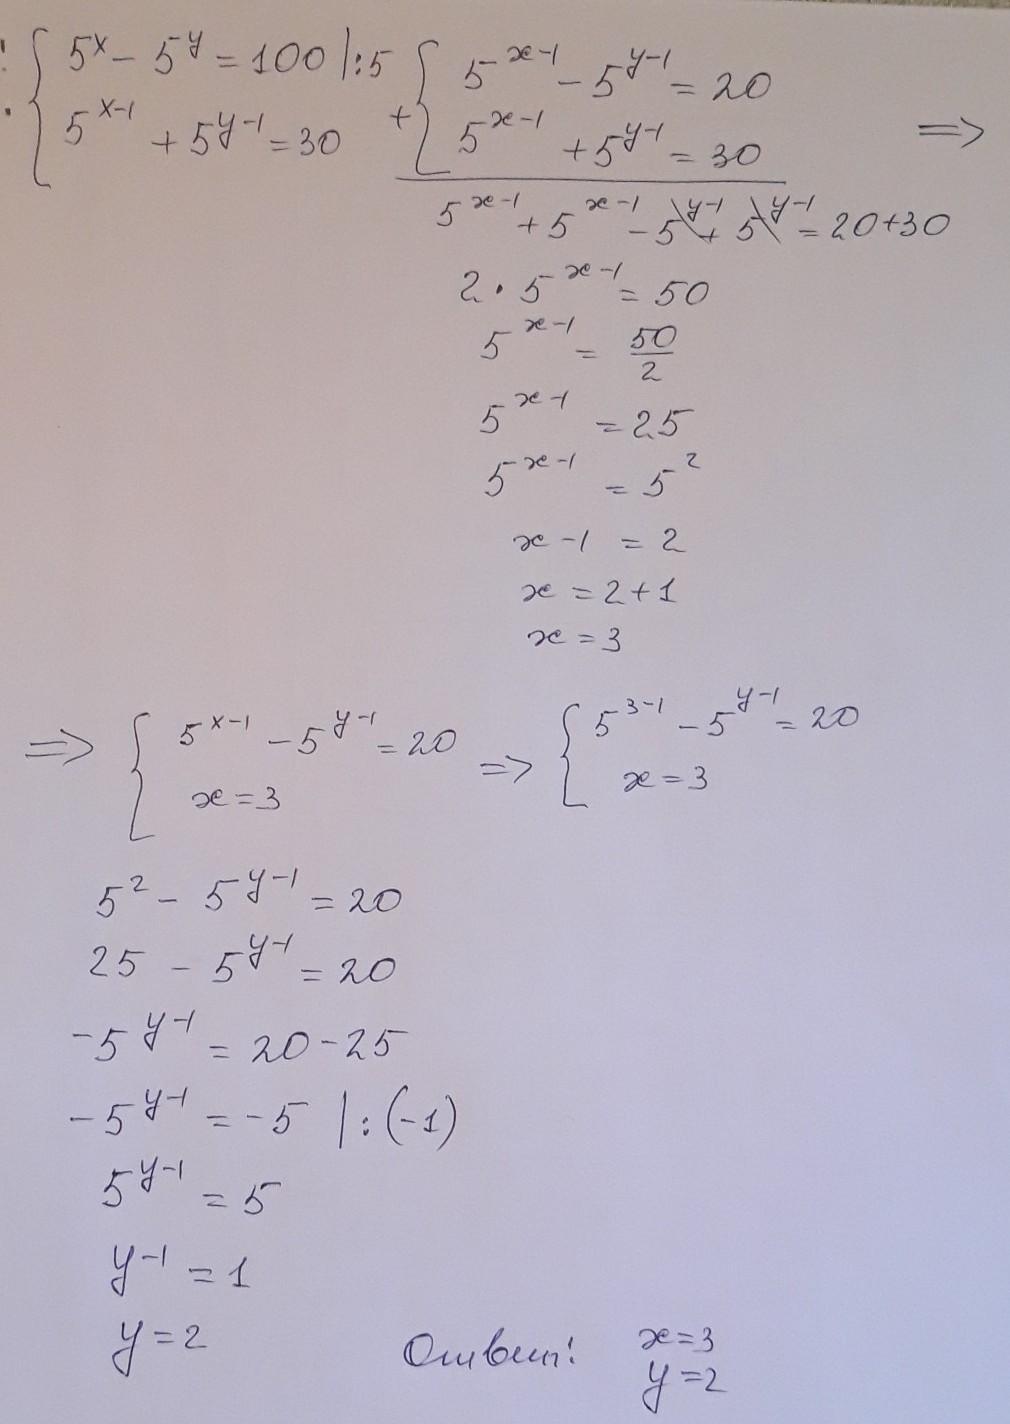 { 5^x - 5^y = 100 |:5
{ 5^(x-1) + 5^(y-1) = 30
+ { 5^(x-1) - 5^(y-1) = 20
{ 5^(x-1) + 5^(y-1) = 30 =>
5^(x-1) + 5^(x-1) - 5^(y-1) + 5^(y-1) = 20+30
2 · 5^(x-1) = 50
5^(x-1) = 50/2
5^(x-1) = 25
5^(x-1) = 5^2
x - 1 = 2
x = 2 + 1
x = 3
=> { 5^(x-1) - 5^(y-1) = 20
{ x = 3
=> { 5^(3-1) - 5^(y-1) = 20
{ x = 3
5^2 - 5^(y-1) = 20
25 - 5^(y-1) = 20
-5^(y-1) = 20 - 25
-5^(y-1) = -5 |:(-1)
5^(y-1) = 5
y-1 = 1
y = 2
Ответ: x = 3
y = 2